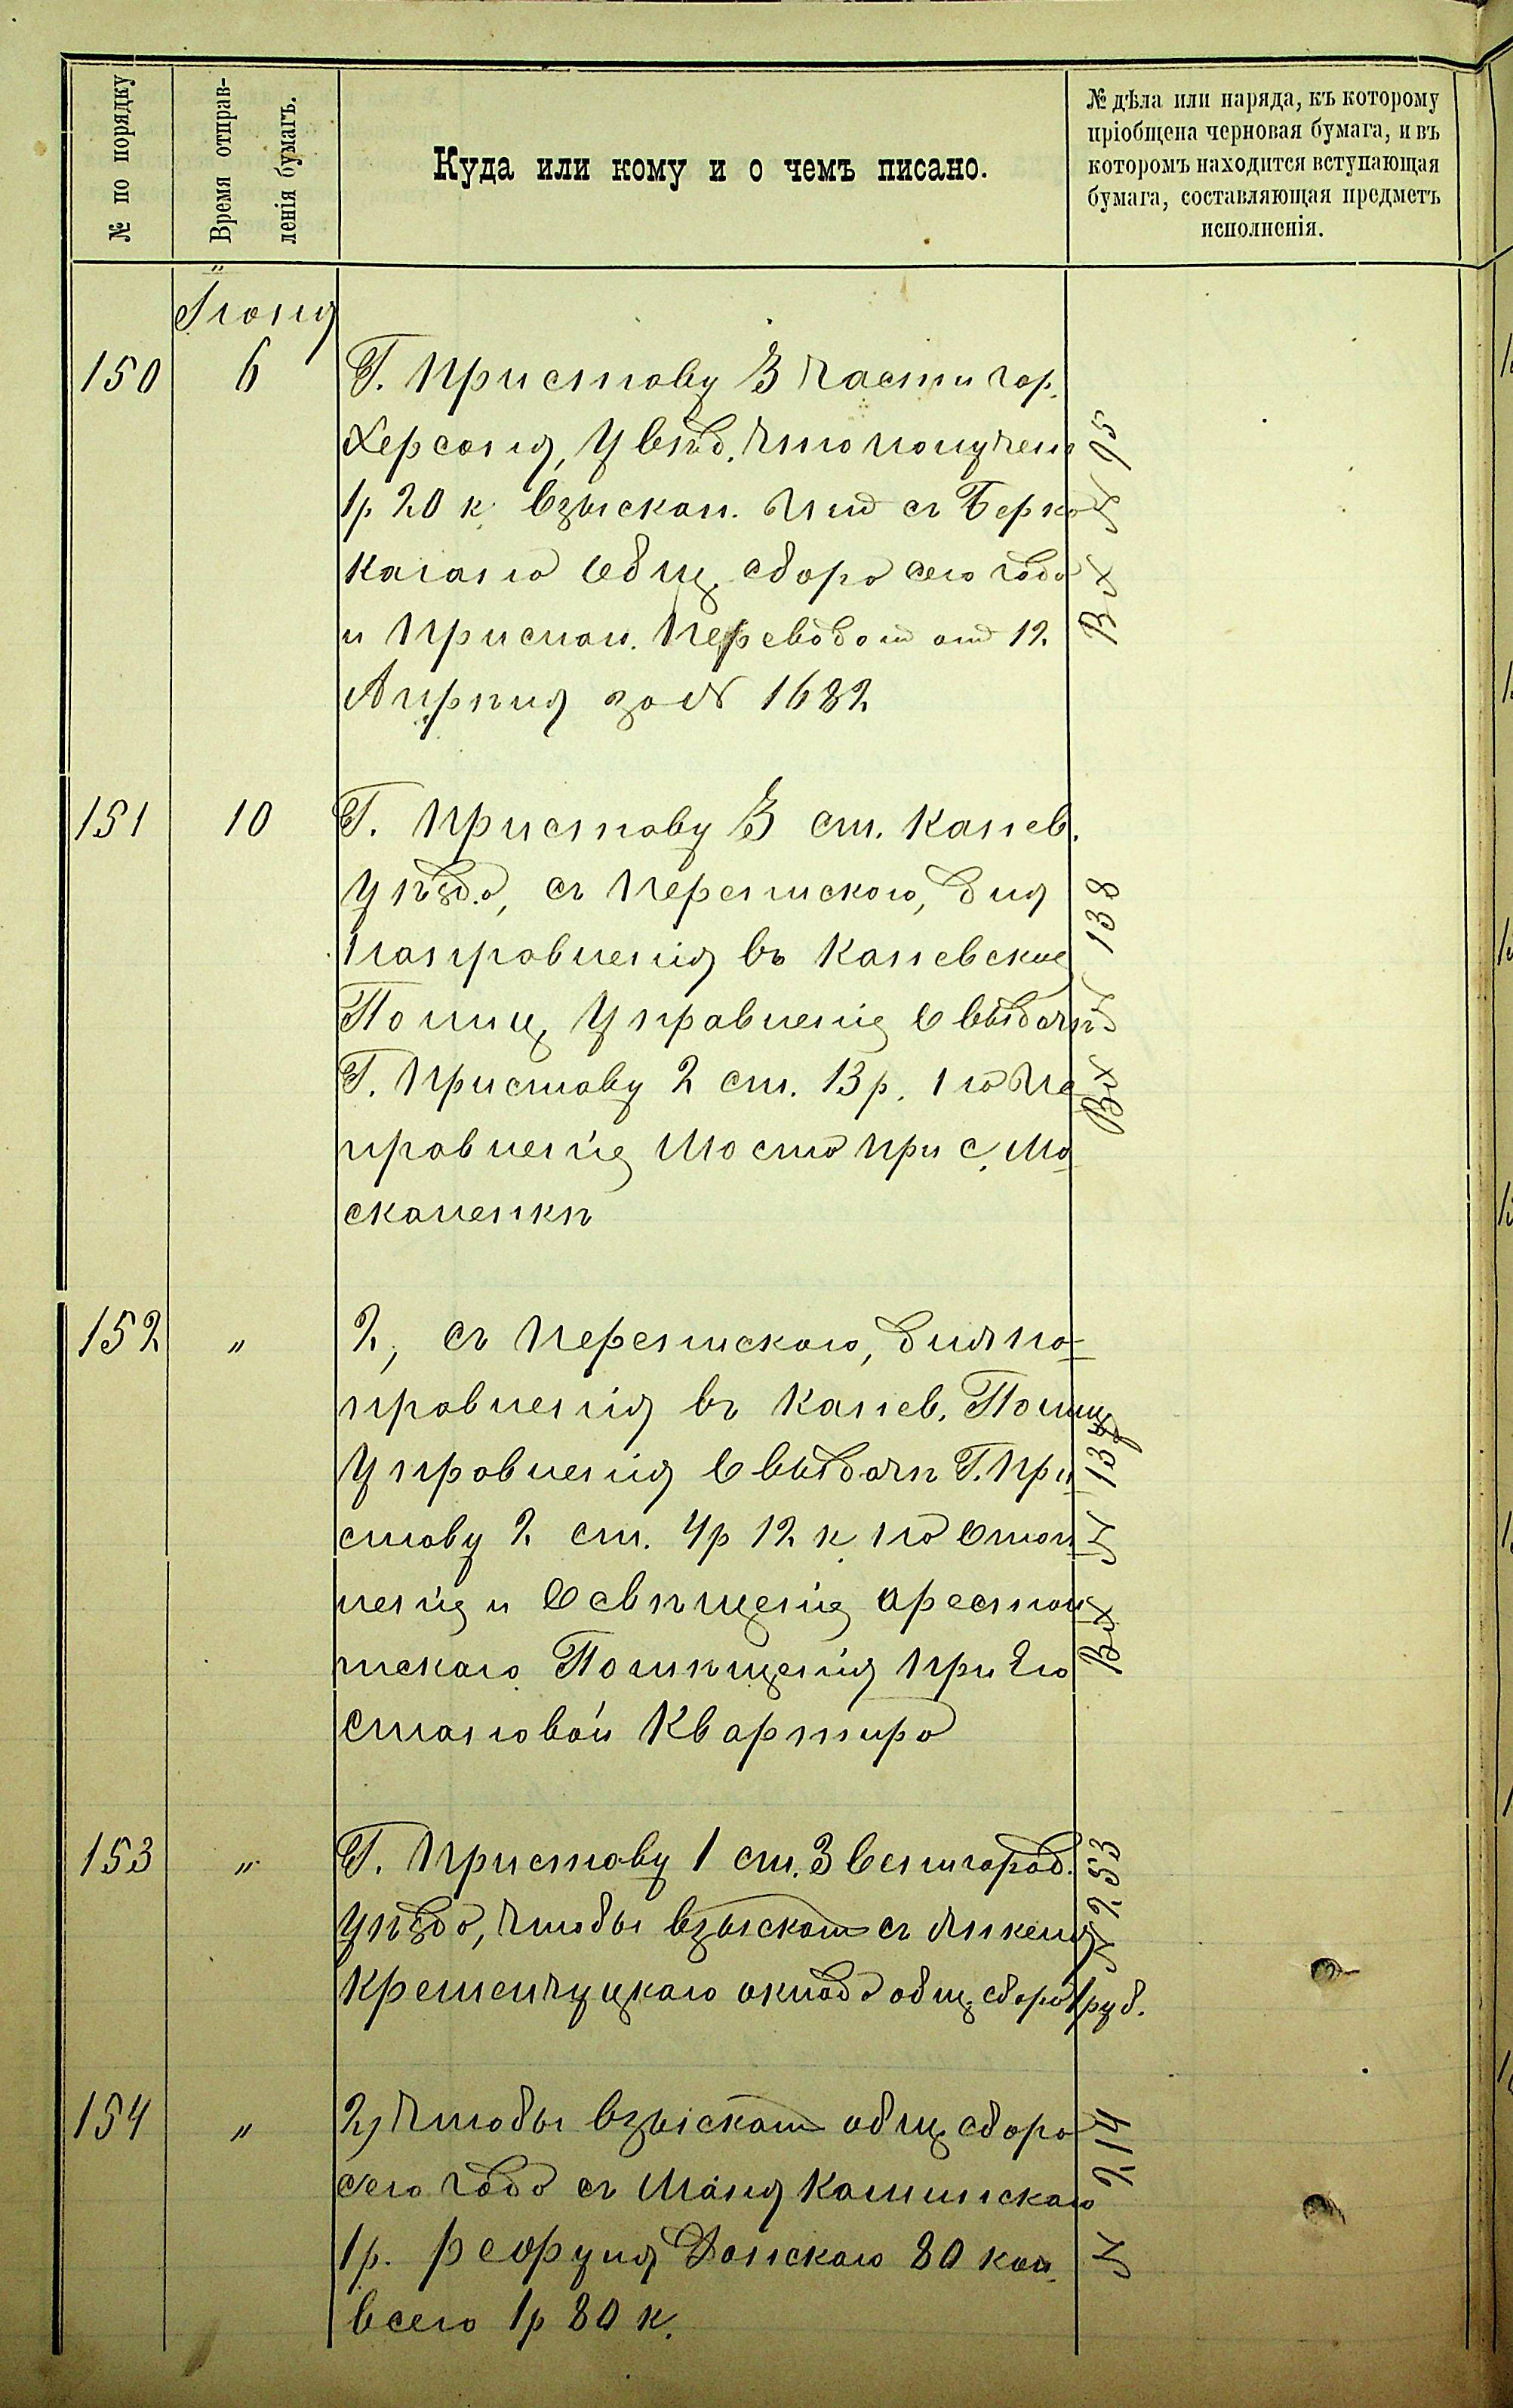 № по порядку
Время отправ-
ленія бумагъ.
Куда или кому и о чемъ писано.
№ дѣла или наряда, къ которому
пріобщена черновая бумага, и въ
которомъ находится вступающая
бумага, составляющая предметъ
исполненія.
Іюня
150
6
Г. Приставу 3 части гор.
Херсона, увѣд. что получен
1р 20 к взыскан. имъ съ Берка
Кагана общ. сбора сего года
и прислан. переводом от 12
Апрѣля за № 1682
Вх № 95
151
10
Г. Приставу 3 ст. Канев.
уѣзда, съ перепискою, для
направленія въ Каневское
Полиц. Управленіе о выдачѣ
Г. Приставу 2 ст. 13 р. на ис
правленіе моста при с. Мо
скаленкѣ
Вх № 138
152
"
2, съ перепискою, для на-
правленія въ Канев. Полиц
Управленія о выдачѣ Г. При
ставу 2 ст. 4р 12 к на отоп
леніе и освѣщеніе арестан
тскаго помѣщенія при его
становой квартире
Вх № 137
153
"
Г. Приставу 1 ст. Звенигород.
уѣзда, чтобы взыскат съ Янкеля
Кременчуцкаго оклада общ. сбора 1 руб.
№ 253
154
"
2, чтобы взыскат общ. сбора
сего года съ Маня Калинскаго
1р. Донскаго 80 коп
всего 1р 80 к.
№ 214